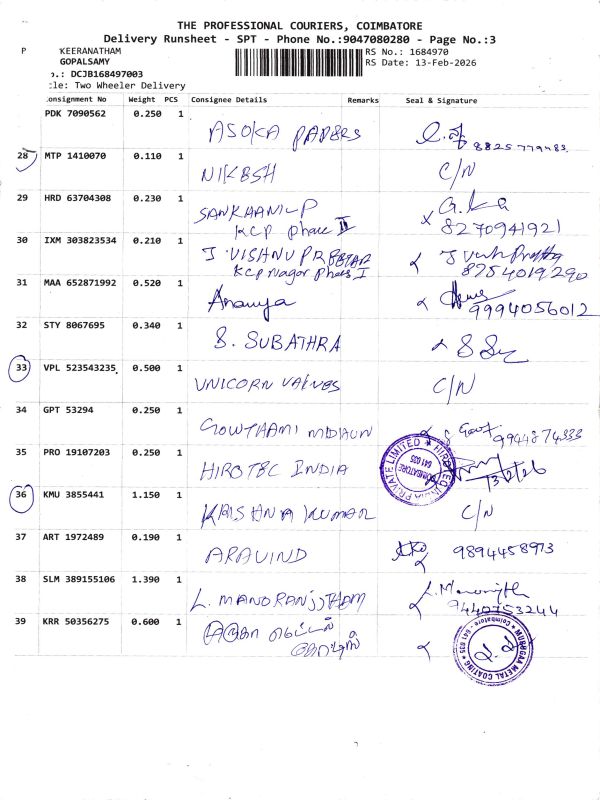 THE PROFESSIONAL COURIERS, COIMBATORE
Delivery Runsheet - SPT - Phone No.:9047080280 - Page No.:3
P KEERANATHAM RS No.: 1684970
GOPALSAMY RS Date: 13-Feb-2026
.: DCJB168497003
le: Two Wheeler Delivery
onsignment No Weight PCS Consignee Details Remarks Seal & Signature
PDK 7090562 0.250 1 ASOKA PAPERS
28 MTP 1410070 0.110 1 NIKESH C/N
29 HRD 63704308 0.230 1 SANKHANIL P 8270941921
KCP phase II
30 IXM 303823534 0.210 1 J. VISHNU 8754019290
KCP Nagar Phase I
31 MAA 652871992 0.520 1 Ananya 9994056012
32 STY 8067695 0.340 1 S. SUBATHRA
33 VPL 523543235 0.500 1 UNICORN VALVES C/N
34 GPT 53294 0.250 1 GOWTHAMI 9944874333
35 PRO 19107203 0.250 1 HIROTEC INDIA 13/2/26
HIROTEC INDIA PRIVATE LIMITED
COIMBATORE
641 035
36 KMU 3855441 1.150 1 KRISHNA KUMAR C/N
37 ART 1972489 0.190 1 ARAVIND 9894458973
38 SLM 389155106 1.390 1 L. MANORANJITHAM 9440753244
39 KRR 50356275 0.600 1 முருகா மெட்டல்
MURUGAA METAL COATING
Coimbatore - 641 035